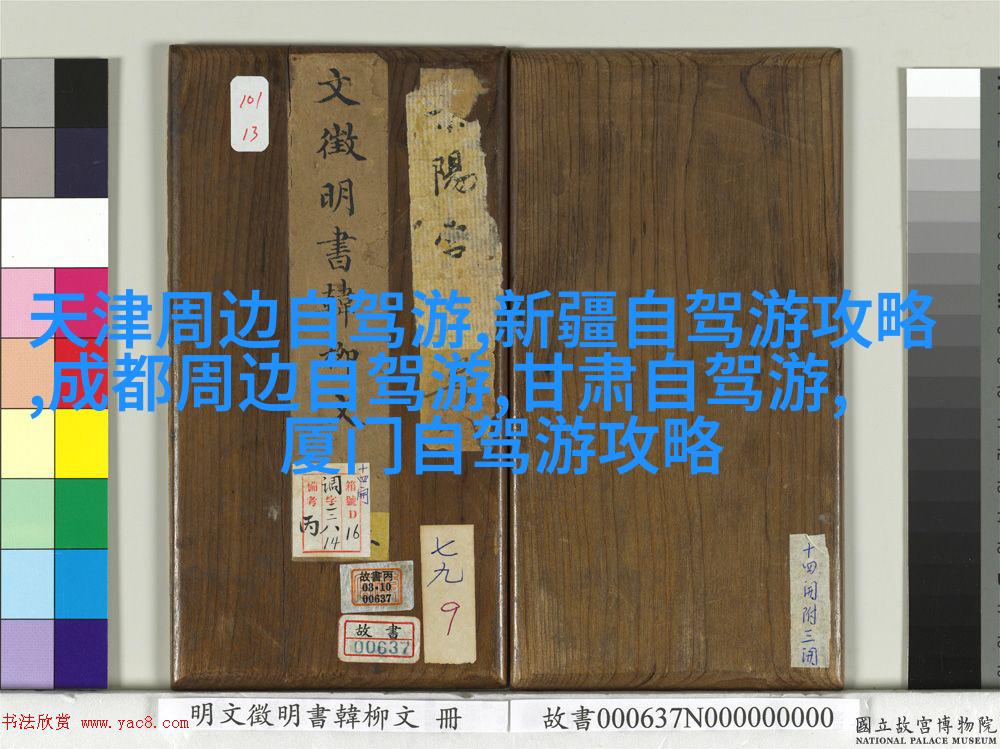 101
13
文徵明書韓柳文
陽宮
天津周边自驾游,新疆自驾游攻略
,成都周边自驾游,甘肃自驾游,
厦门自驾游攻略
十四開
箱號D
16
調字三八
14
備考
丙
故書丙
03·10
00637
故書
00637
七九
9
十四開附三開
明文徵明書韓柳文 冊
故書000637N000000000
書法欣賞 www.yac8.com
國立故宮博物院
NATIONAL PALACE MUSEUM